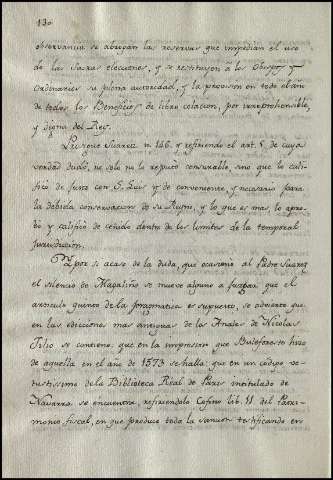 130
observancia se abrogan las reservas que impedian el uso
de las sacras elecciones, y se restituyen á los Obispos y
Ordinarios su plena autoridad, y la provision en todo el año
de todos los Beneficios de libre colacion, por irreprehensible,
y digna del Rey.
Prosigue Suarez n. 146. y refiriendo el art. 5 de cuya
verdad dudó, no solo no le reputó censurable, sino que lo cali-
ficó de Santo con S. Luis y de conveniente, y necesario para
la debida conservacion de su Reyno, y lo que es mas lo apro-
bó y calificó de ceñido dentro de los limites de la temporal
Jurisdiccion.
Y por si acaso de la duda, que ocasionó al Padre Suarez
el silencio de se mueve alguno a juzgar que el
articulo quinto de la pragmatica es supuesto, se advierte que
en las ediciones mas antiguas de los Anales de Nicolas
Gilio se contiene: que en la impresion que se hizo
de aquella en el año de 1573 se halla: que en un codigo ve-
tustissimo de la Biblioteca Real de Paris intitulado de
Navarra se encuentra, refiriendolo lib. 11 del Patri-
monio fiscal, en que produce toda la sancion testificando en